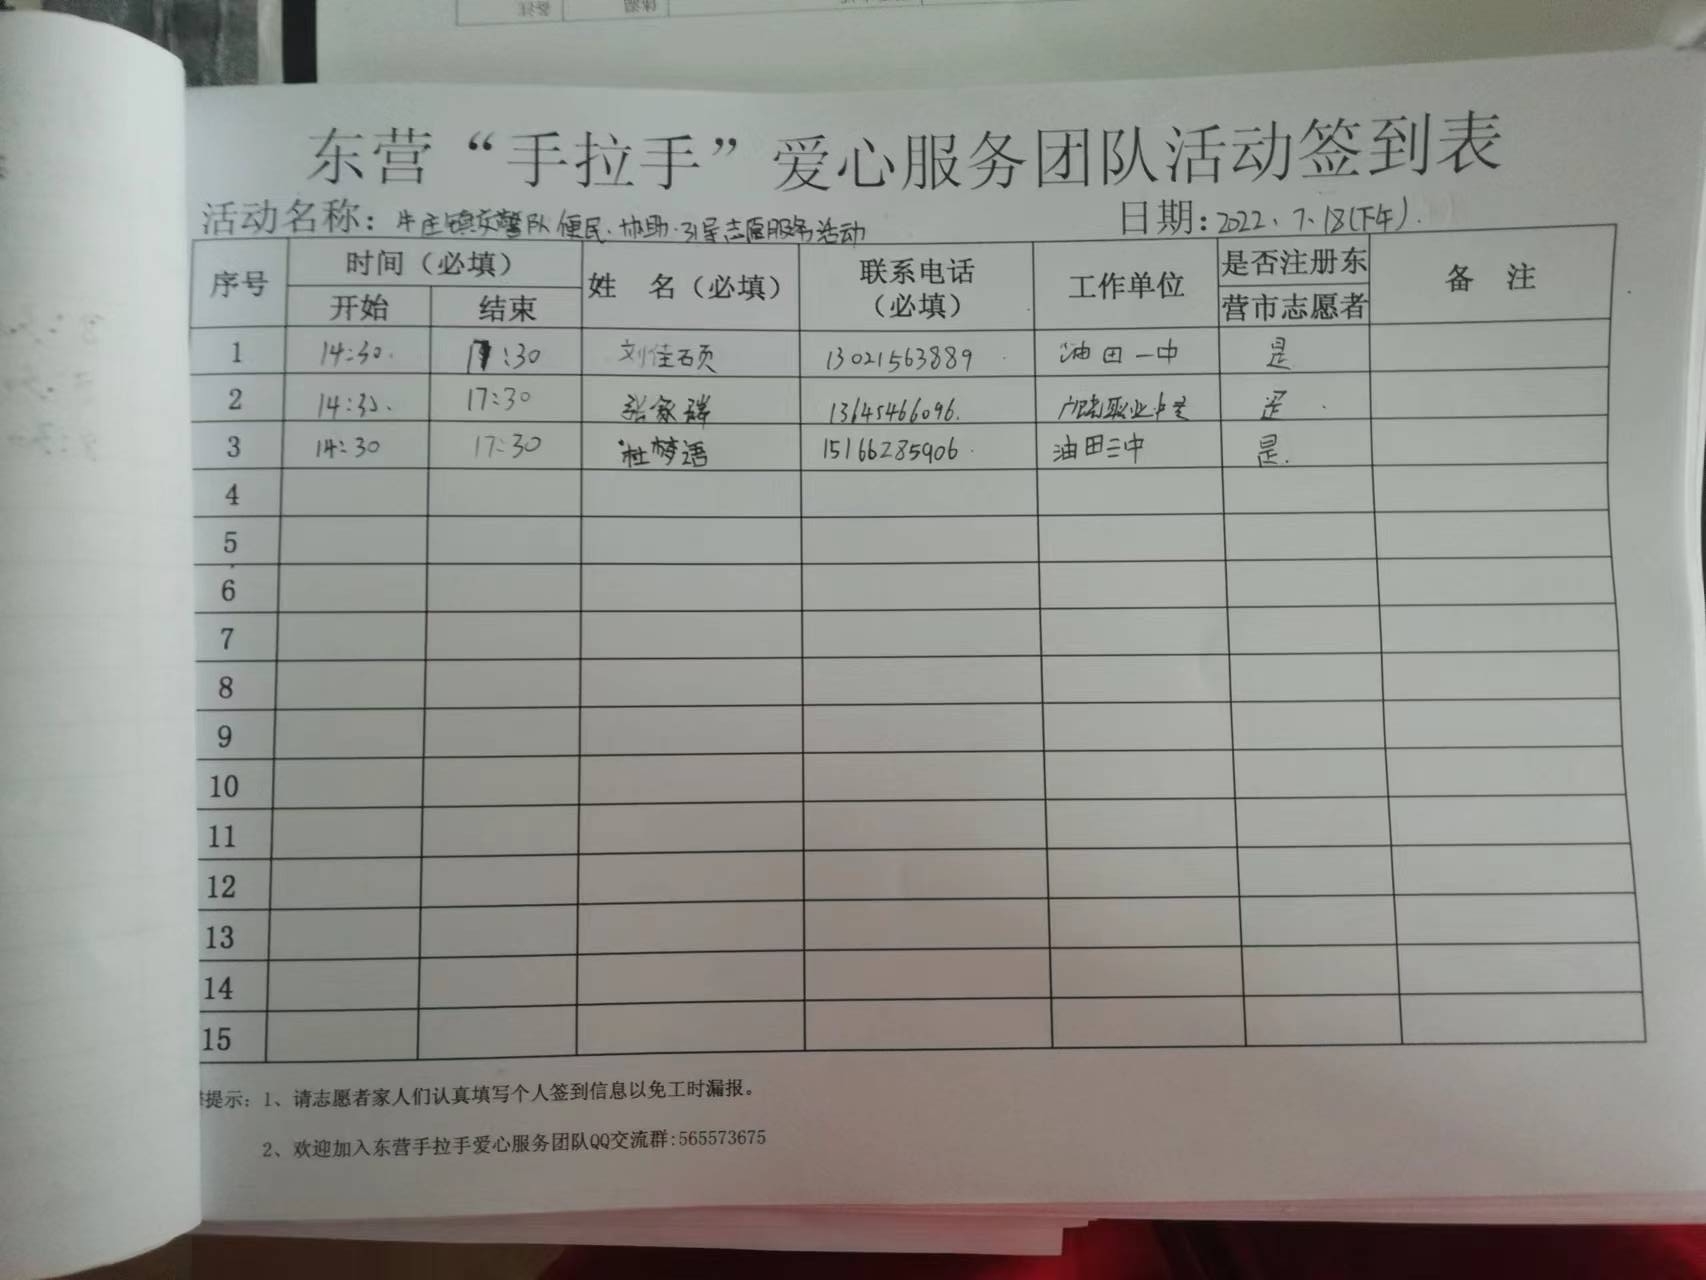 东营“手拉手”爱心服务团队活动签到表
活动名称：牛庄镇交警队便民、协助、引导志愿服务活动 日期：2022、7、18(下午).
序号 时间（必填） 姓 名（必填） 联系电话（必填） 工作单位 是否注册东营市志愿者 备 注
开始 结束
1 14:30. 17:30 刘佳硕 13021563889 油田一中 是
2 14:30. 17:30 张家祥 13645466096. 职业 是
3 14:30 17:30 杜梦语 15166285906 油田三中 是.
4
5
6
7
8
9
10
11
12
13
14
15
提示：1、请志愿者家人们认真填写个人签到信息以免工时漏报。
2、欢迎加入东营手拉手爱心服务团队QQ交流群:565573675